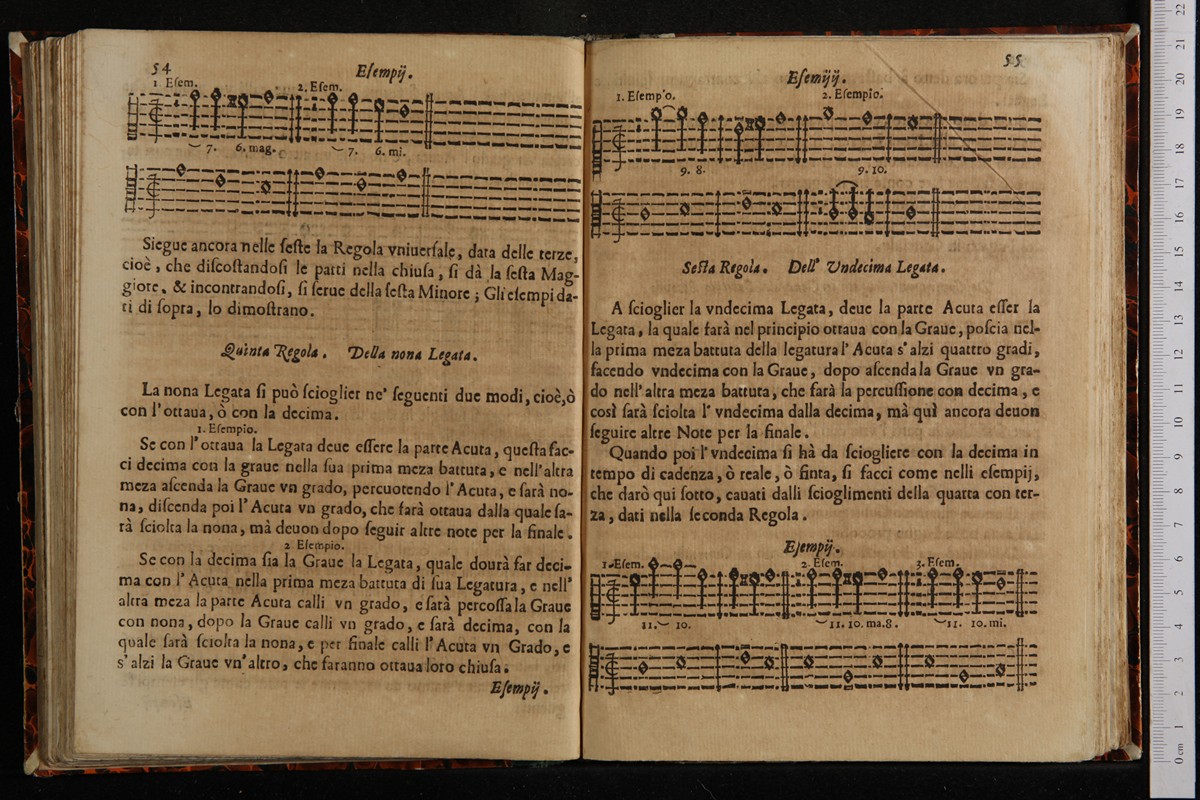 54
Eſempij.
1 Eſem.
2. Eſem.
7. 6. mag. 7. 6. mi.
Siegue ancora nelle ſeſte la Regola vniuerſale, data delle terze,
cioè, che diſcoſtandoſi le parti nella chiuſa, ſi dà la ſeſta Mag-
giore, & incontrandoſi, ſi ſerue della ſeſta Minore; Gli eſempi da-
ti di ſopra, lo dimoſtrano.
Quinta Regola. Della nona Legata.
La nona Legata ſi può ſcioglier ne' ſeguenti due modi, cioè, ò
con l'ottaua, ò con la decima.
1. Eſempio.
Se con l'ottaua la Legata deue eſſere la parte Acuta, queſta fac-
ci decima con la graue nella ſua prima meza battuta, e nell'altra
meza aſcenda la Graue vn grado, percuotendo l'Acuta, e ſarà no-
na, diſcenda poi l'Acuta vn grado, che farà ottaua dalla quale ſa-
rà ſciolta la nona, mà deuon dopo ſeguir altre note per la finale.
2 Eſempio.
Se con la decima ſia la Graue la Legata, quale dourà far deci-
ma con l'Acuta nella prima meza battuta di ſua Legatura, e nell'
altra meza la parte Acuta calli vn grado, e ſarà percoſſa la Graue
con nona, dopo la Graue calli vn grado, e ſarà decima, con la
quale ſarà ſciolta la nona, e per finale calli l'Acuta vn Grado, e
s'alzi la Graue vn'altro, che faranno ottaua loro chiuſa.
Eſempij.
55
Eſemÿÿ.
1. Eſemp'o.
2. Eſempio.
9. 8. 9. 10.
Seſta Regola. Dell' Vndecima Legata.
A ſcioglier la vndecima Legata, deue la parte Acuta eſſer la
Legata, la quale farà nel principio ottaua con la Graue, poſcia nel-
la prima meza battuta della legatura l'Acuta s'alzi quattro gradi,
facendo vndecima con la Graue, dopo aſcenda la Graue vn gra-
do nell'altra meza battuta, che farà la percuſſione con decima, e
così ſarà ſciolta l'vndecima dalla decima, mà quì ancora deuon
ſeguire altre Note per la finale.
Quando poi l'vndecima ſi hà da ſciogliere con la decima in
tempo di cadenza, ò reale, ò finta, ſi facci come nelli eſempij,
che darò qui ſotto, cauati dalli ſcioglimenti della quarta con ter-
za, dati nella ſeconda Regola.
Eſempij.
1. Eſem.
2. Eſem.
3. Eſem.
11. 10. 11. 10. ma. 8. 11. 10. mi.